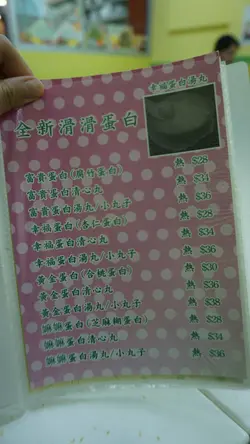 幸福蛋白湯丸
全新滑滑蛋白
富貴蛋白(腐竹蛋白) 熱 $28
富貴蛋白清心丸 熱 $34
富貴蛋白湯丸/小丸子 熱 $36
幸福蛋白(杏仁蛋白) 熱 $28
幸福蛋白清心丸 熱 $34
幸福蛋白湯丸/小丸子 熱 $36
黃金蛋白(合桃蛋白) 熱 $30
黃金蛋白清心丸 熱 $36
黃金蛋白湯丸/小丸子 熱 $38
蛋白(芝麻糊蛋白) 熱 $28
蛋白清心丸 熱 $34
蛋白湯丸/小丸子 熱 $36